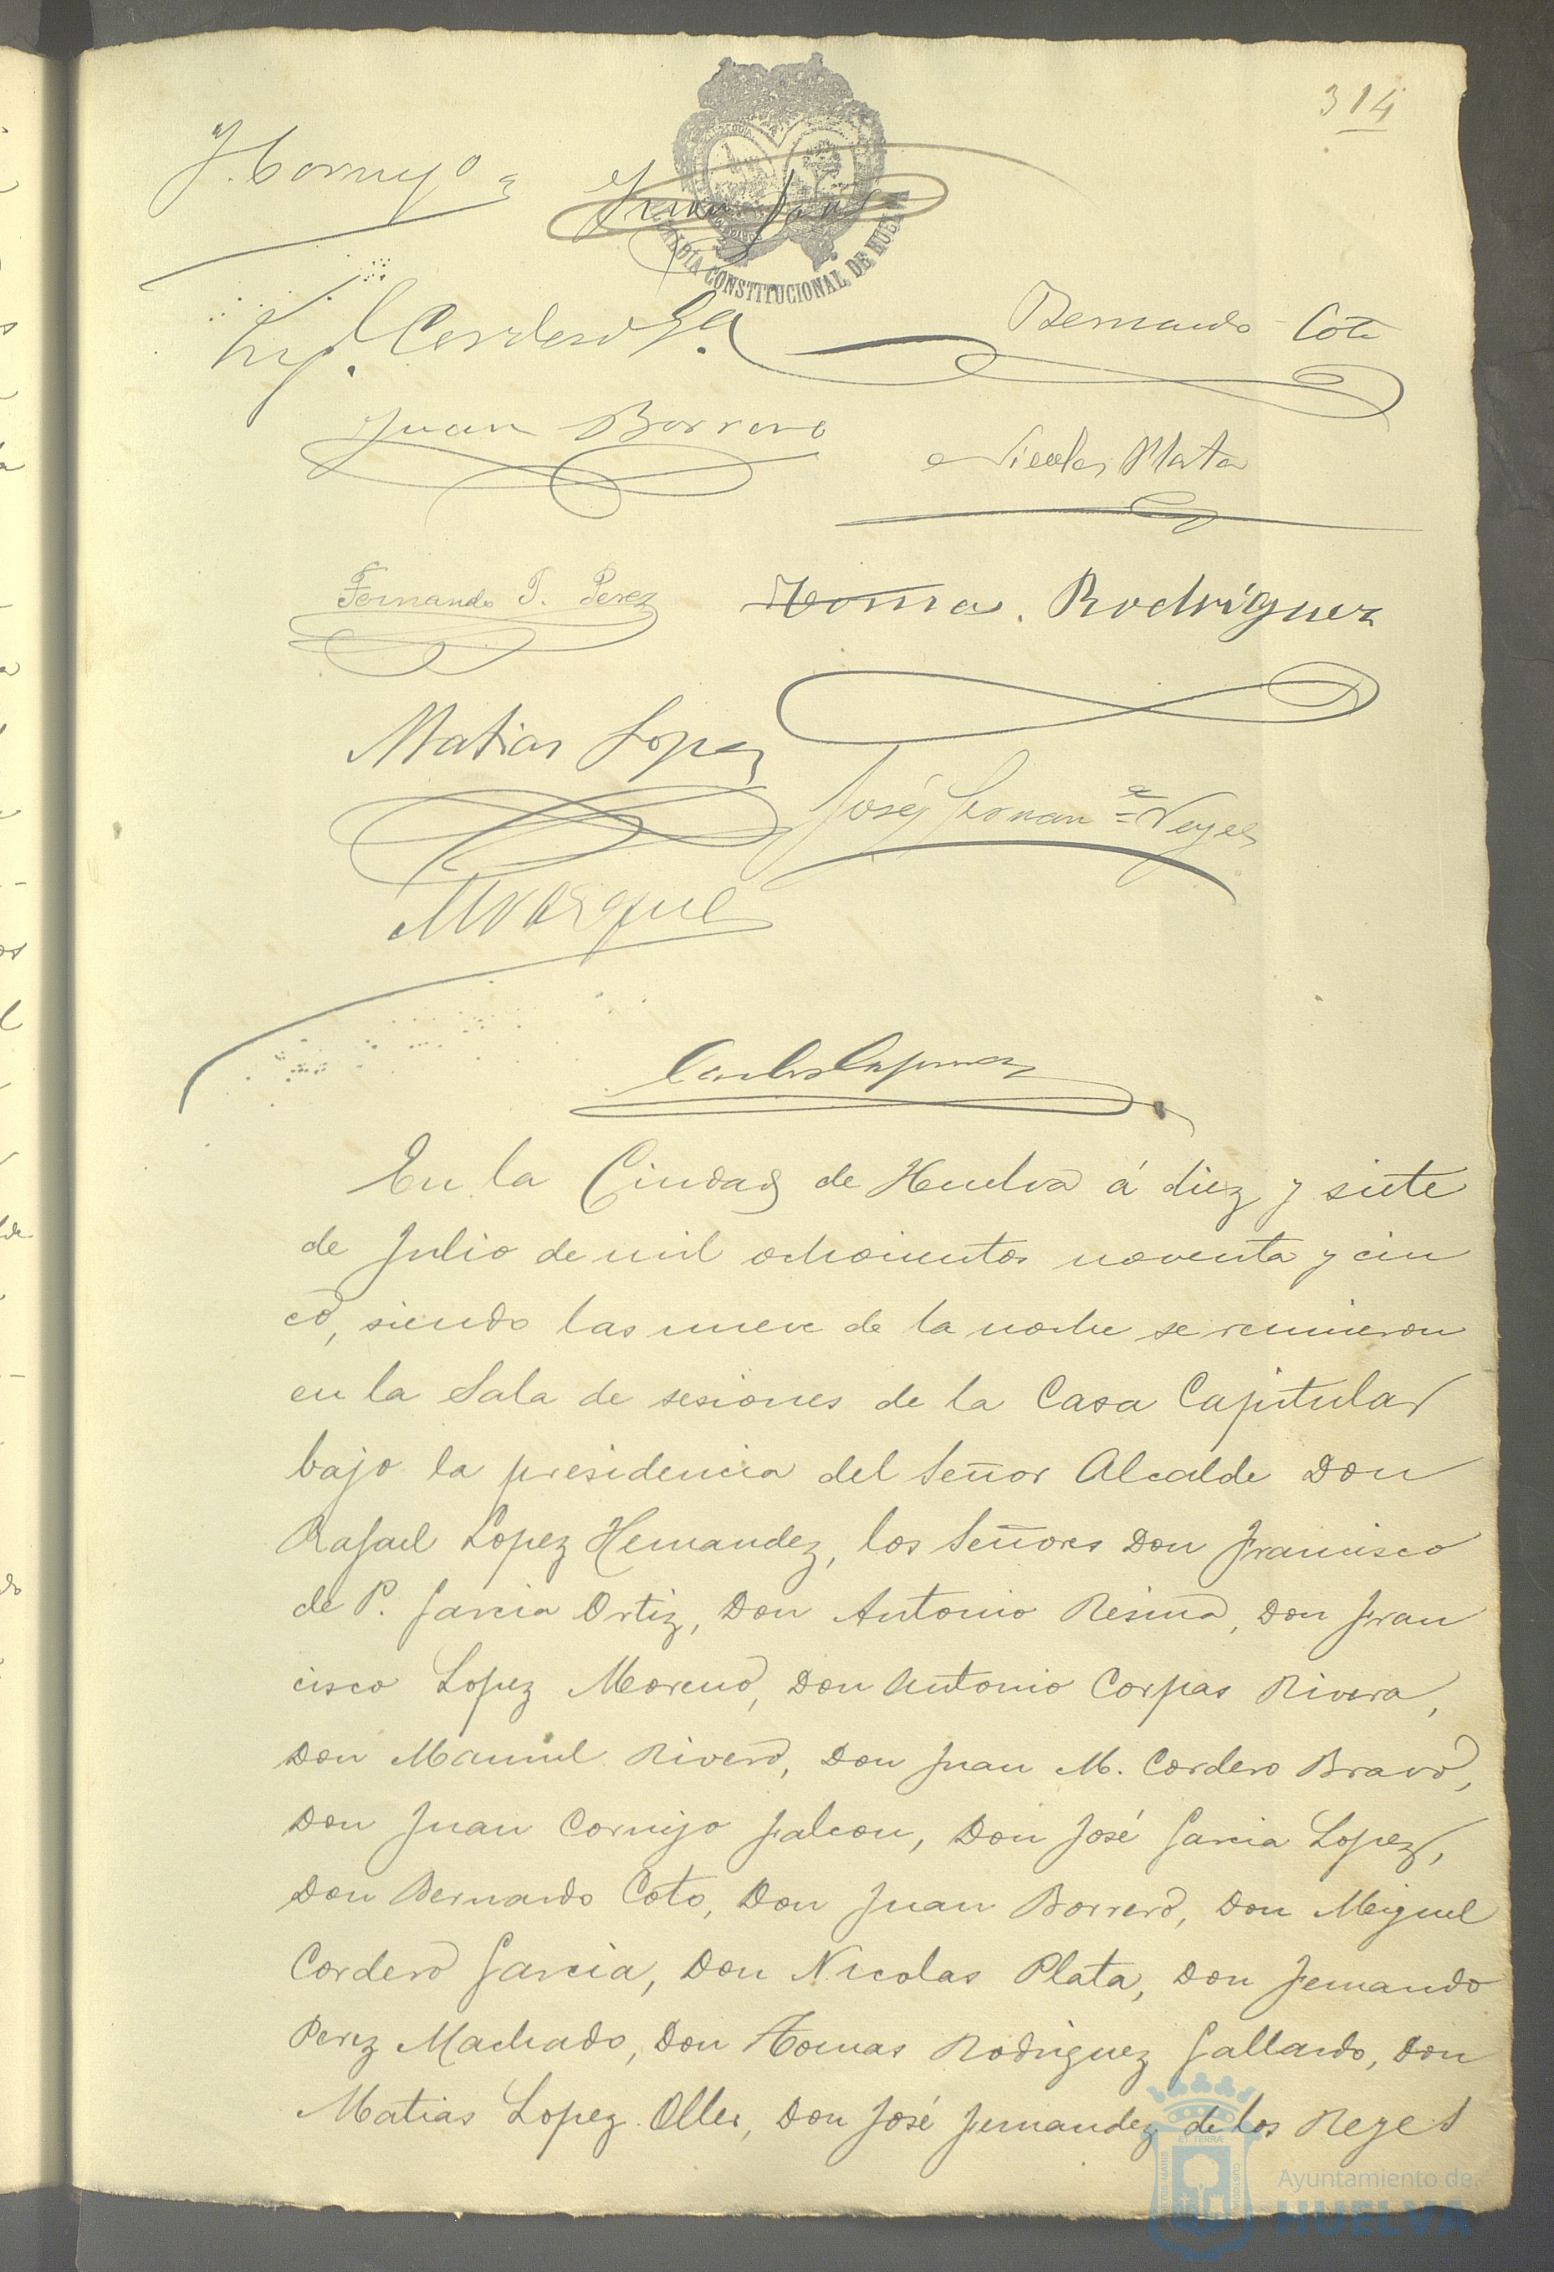 314
J. Cornejo
Juan
ALCALDÍA CONSTITUCIONAL DE HUELVA
Mig.l Cordero G.a
Bernardo Coto
Juan Borrero
Nicolas Plata
Fernando T. Perez
Tomas Rodriguez
Matias Lopez
José Fernan.z Reyes
M Vazque
En la Ciudad de Huelva á diez y siete
de Julio de mil ochocientos noventa y cin
co, siendo las nueve de la noche se reunieron
en la Sala de sesiones de la Casa Capitular
bajo la presidencia del Señor Alcalde Don
Rafael Lopez Hernandez, los Señores Don Francisco
de P. Garcia Ortiz, Don Antonio Resina, Don Fran
cisco Lopez Moreno, Don Antonio Corpas Rivera,
Don Manuel Rivero, Don Juan M. Cordero Bravo,
Don Juan Cornejo Falcon, Don José Garcia Lopez,
Don Bernardo Coto, Don Juan Borrero, Don Miguel
Cordero Garcia, Don Nicolas Plata, Don Fernando
Perez Machado, Don Tomas Rodriguez Gallardo, Don
Matias Lopez Oller, Don José Fernandez de los Reyes
Ayuntamiento de
HUELVA